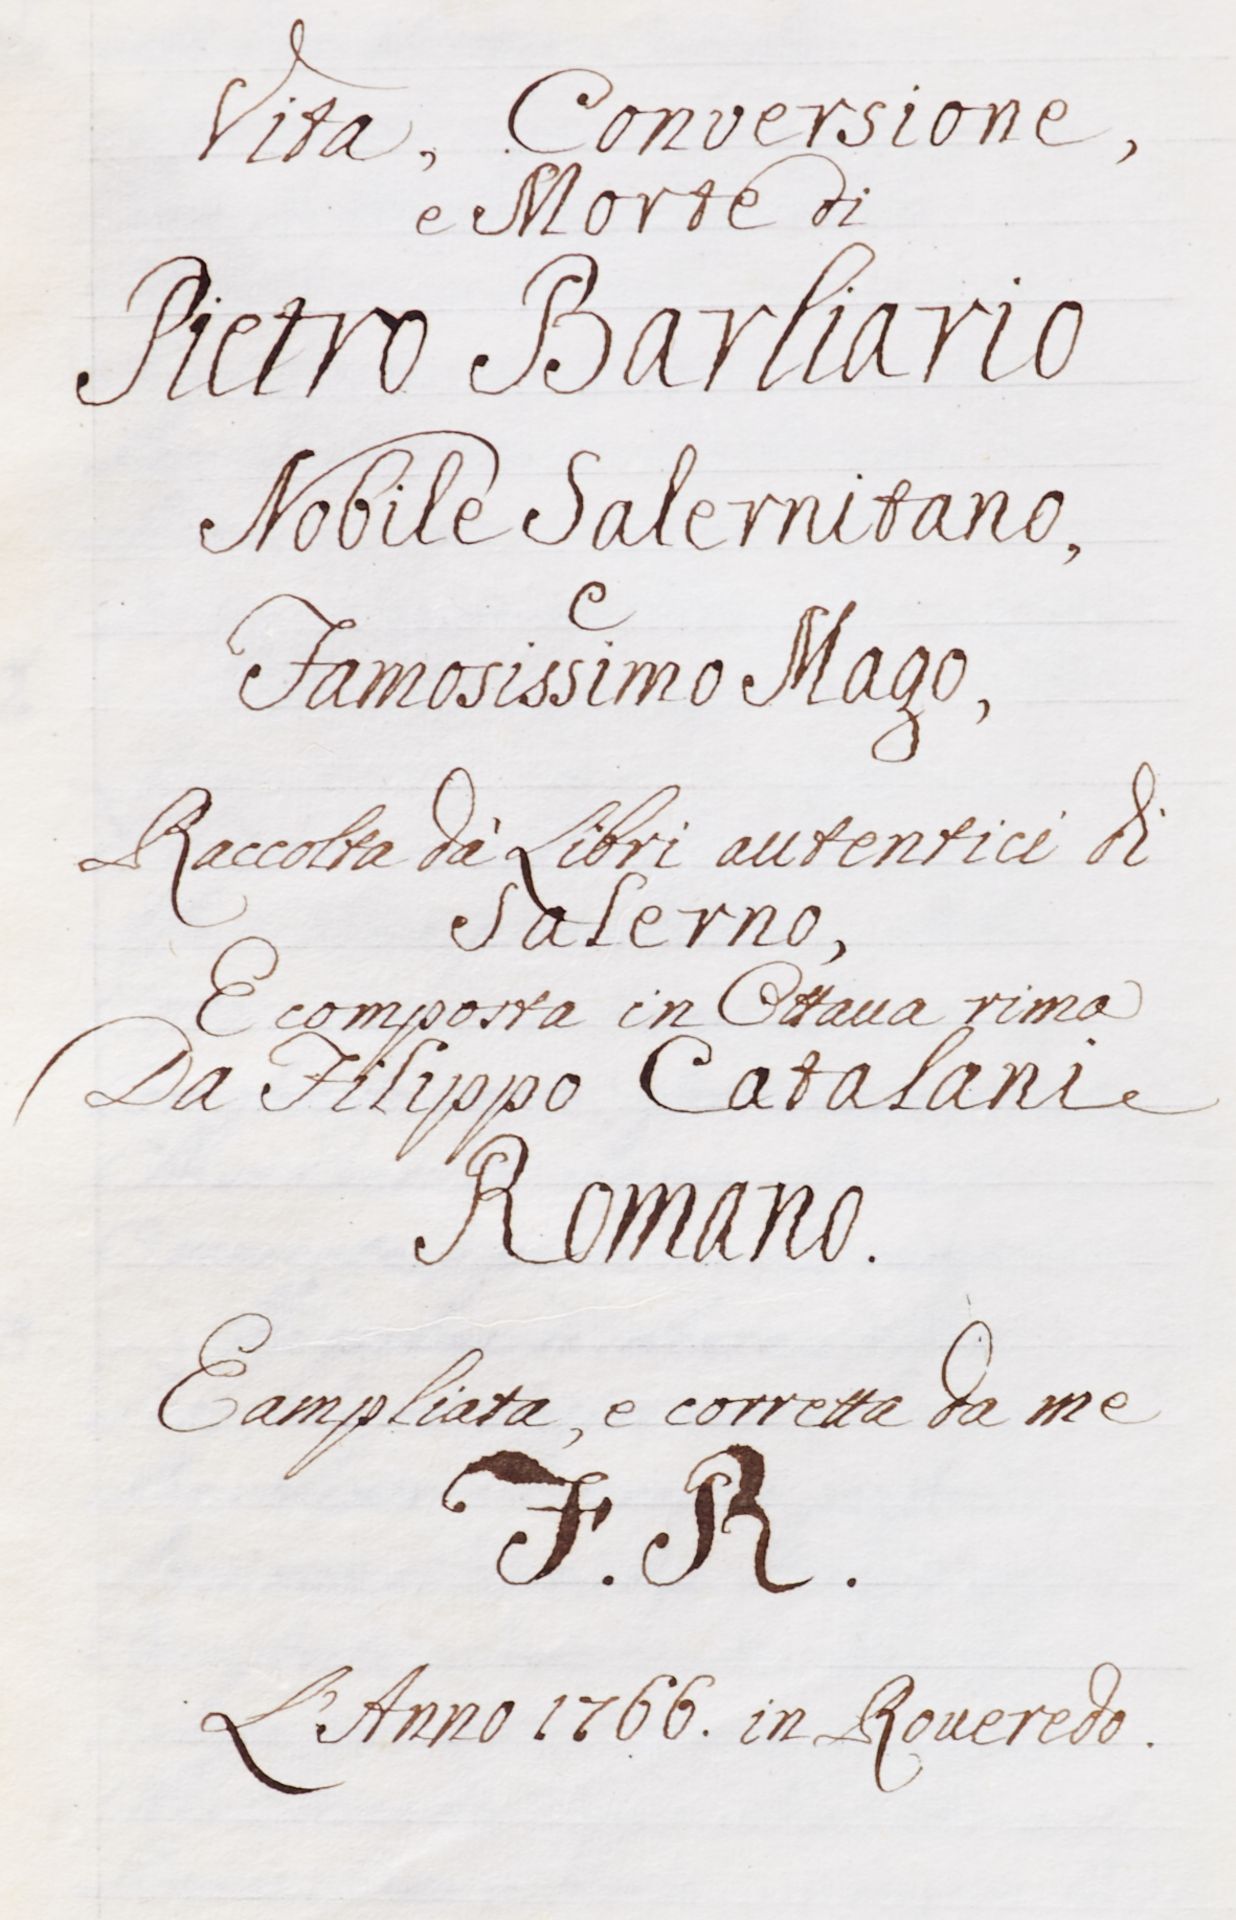 Vita, Conversione,
e Morte di
Pietro Barliario
Nobile Salernitano,
e
Famosissimo Mago,
Raccolta dà Libri autentici di
Salerno,
E composta in Ottaua rima
Da Filippo Catalani
Romano.
E ampliata, e corretta da me
F. R.
L'Anno 1766. in Roueredo.